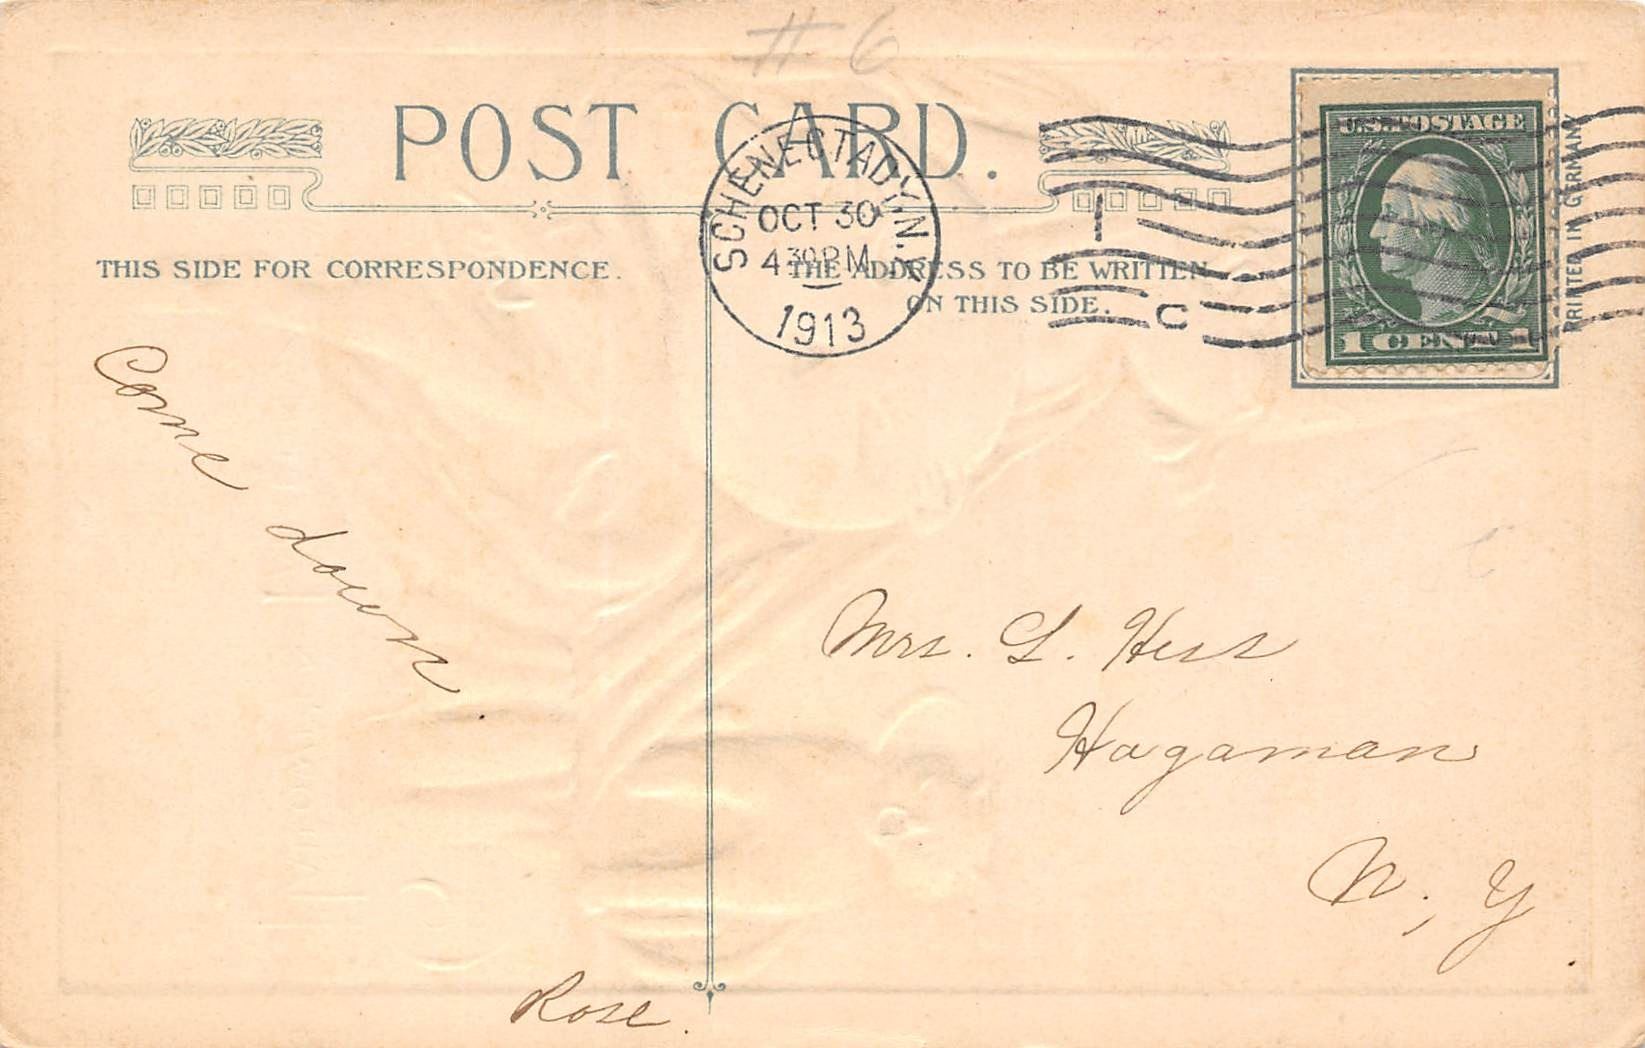 # 6
POST CARD.
SCHENECTADY, N.Y.
OCT 30
4 30 PM
1913
1
C
U.S. POSTAGE
1 CENT 1
PRINTED IN GERMANY
THIS SIDE FOR CORRESPONDENCE.
THE ADDRESS TO BE WRITTEN
ON THIS SIDE.
Come down
Rose.
Mrs. L. Hess
Hagaman
N, Y.